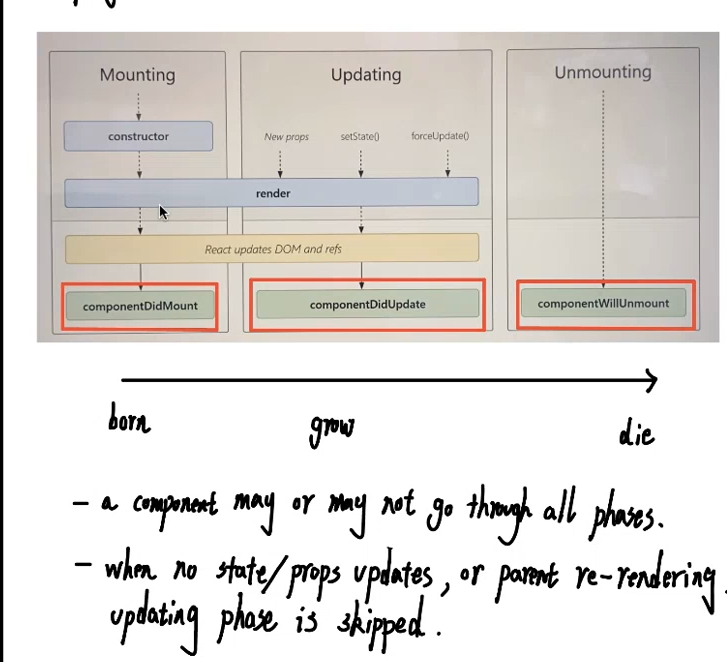 Mounting
Updating
Unmounting
constructor
New props
setState()
forceUpdate()
render
React updates DOM and refs
componentDidMount
componentDidUpdate
componentWillUnmount
born
grow
die
- a component may or may not go through all phases.
- when no state/props updates, or parent re-rendering.
updating phase is skipped.